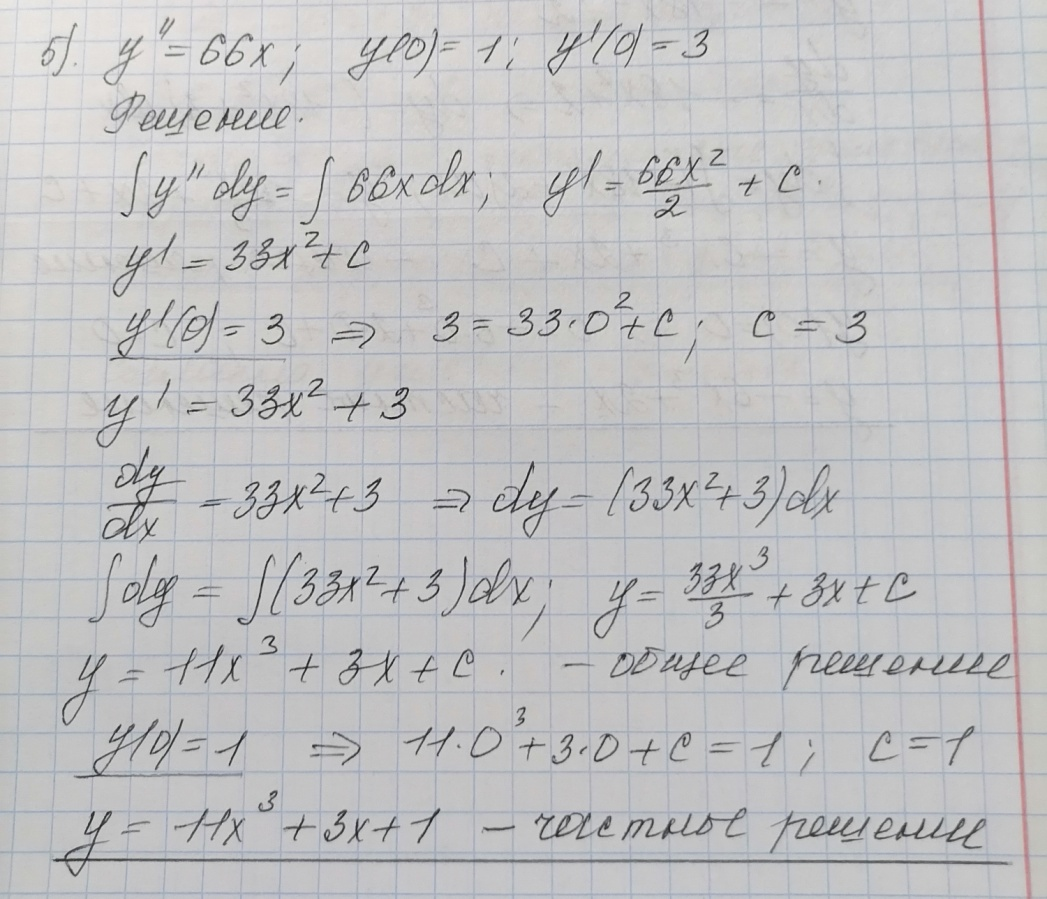 5). y'' = 66x; y(0) = 1; y'(0) = 3
Решение.
∫ y'' dy = ∫ 66x dx; y' = 66x²/2 + C.
y' = 33x² + C
y'(0) = 3 ⇒ 3 = 33·0² + C; C = 3
y' = 33x² + 3
dy/dx = 33x² + 3 ⇒ dy = (33x² + 3)dx
∫ dy = ∫ (33x² + 3)dx; y = 33x³/3 + 3x + C
y = 11x³ + 3x + C. – общее решение
y(0) = 1 ⇒ 11·0³ + 3·0 + C = 1; C = 1
y = 11x³ + 3x + 1 – частное решение